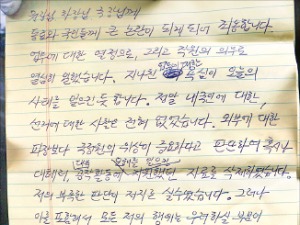 원장님, 차장님, 국장님께
동료와 국민들께 큰 논란이 되게 되어 죄송합니다.
업무에 대한 열정으로, 그리고 직원의 의무로
열심히 일했습니다. 지나친 업무에 대한 욕심이 오늘의
사태를 일으킨 듯 합니다. 정말 내국인에 대한,
선거에 대한 사찰은 전혀 없었습니다. 외부에 대한
파장보다 국정원의 위상이 중요하다고 판단하여 혹시나
대테러, 대북 공작활동에 오해를 일으킨 지원했던 자료를 삭제하였습니다.
저의 부족한 판단이 저지른 실수였습니다. 그러나
이를 포함해서 모든 저의 행위는 우려하실 부분이